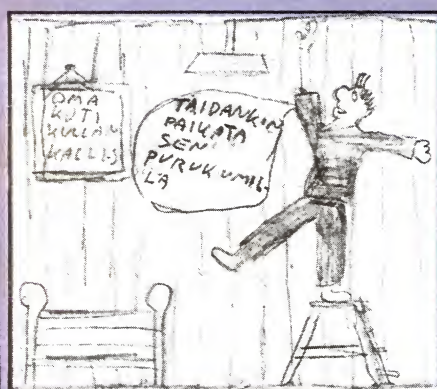 OMA
KOTI
KULLAN
KALLIS
TAIDANKIN
PAIKATA
SEN
PURUKUMIL-
LA